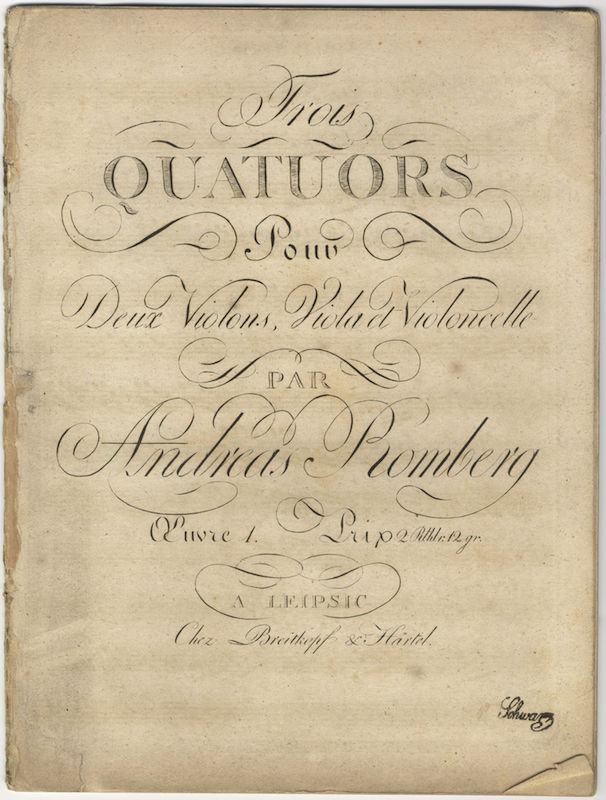 Trois
QUATUORS
Pour
Deux Violons, Viola et Violoncelle
PAR
Andreas Romberg
Œuvre 1. Prix 2 Rthlr. 12 gr.
A LEIPSIC
Chez Breitkopf & Härtel.
Schwarz